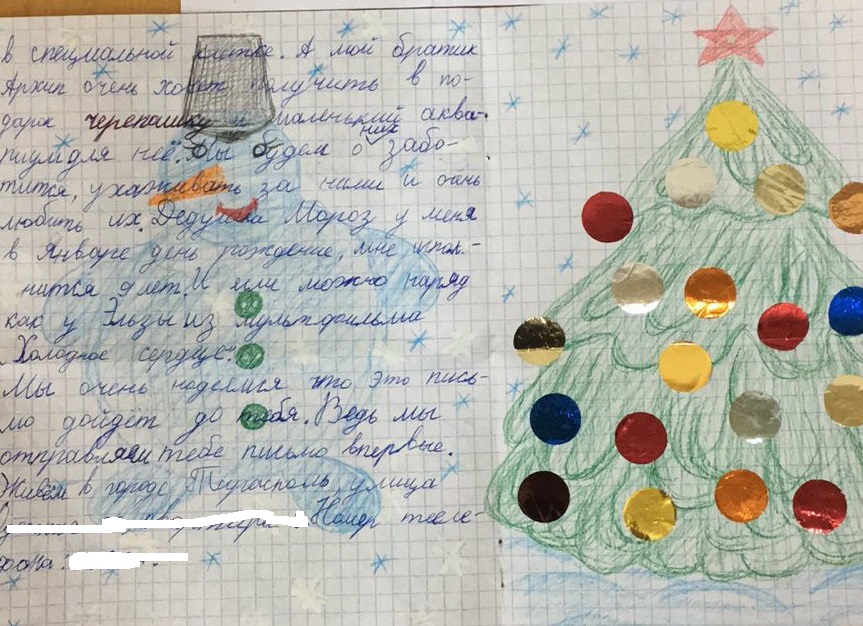 в специальной клетке. А мой братик
Архип очень хочет получить в по-
дарок черепашку и маленький аква-
риум для неё. Мы будем о них забо-
тится, ухаживать за ними и очень
любить их. Дедушка Мороз у меня
в Январе день рождение, мне испол-
нится 9 лет. И если можно наряд
как у Эльзы из мультфильма
"Холодное сердце".
Мы очень надеемся что это пись-
мо дойдёт до тебя. Ведь мы
отправляем тебе письмо впервые.
Живём в городе Тирасполь, улица
Номер теле-
фона: